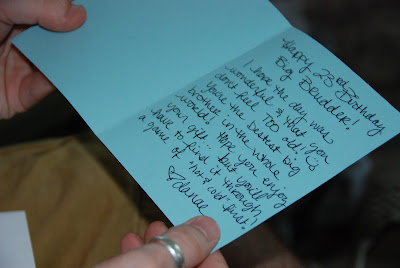 Happy 23rd Birthday
Big Brudder!
I hope the day was
wonderful & that you
don't feel TOO old! U
have the bestest big
brother in the whole
world! Hope you enjoy
your gift... but you'll
have to find it through
a game of "hot & cold" first!
♡Janae